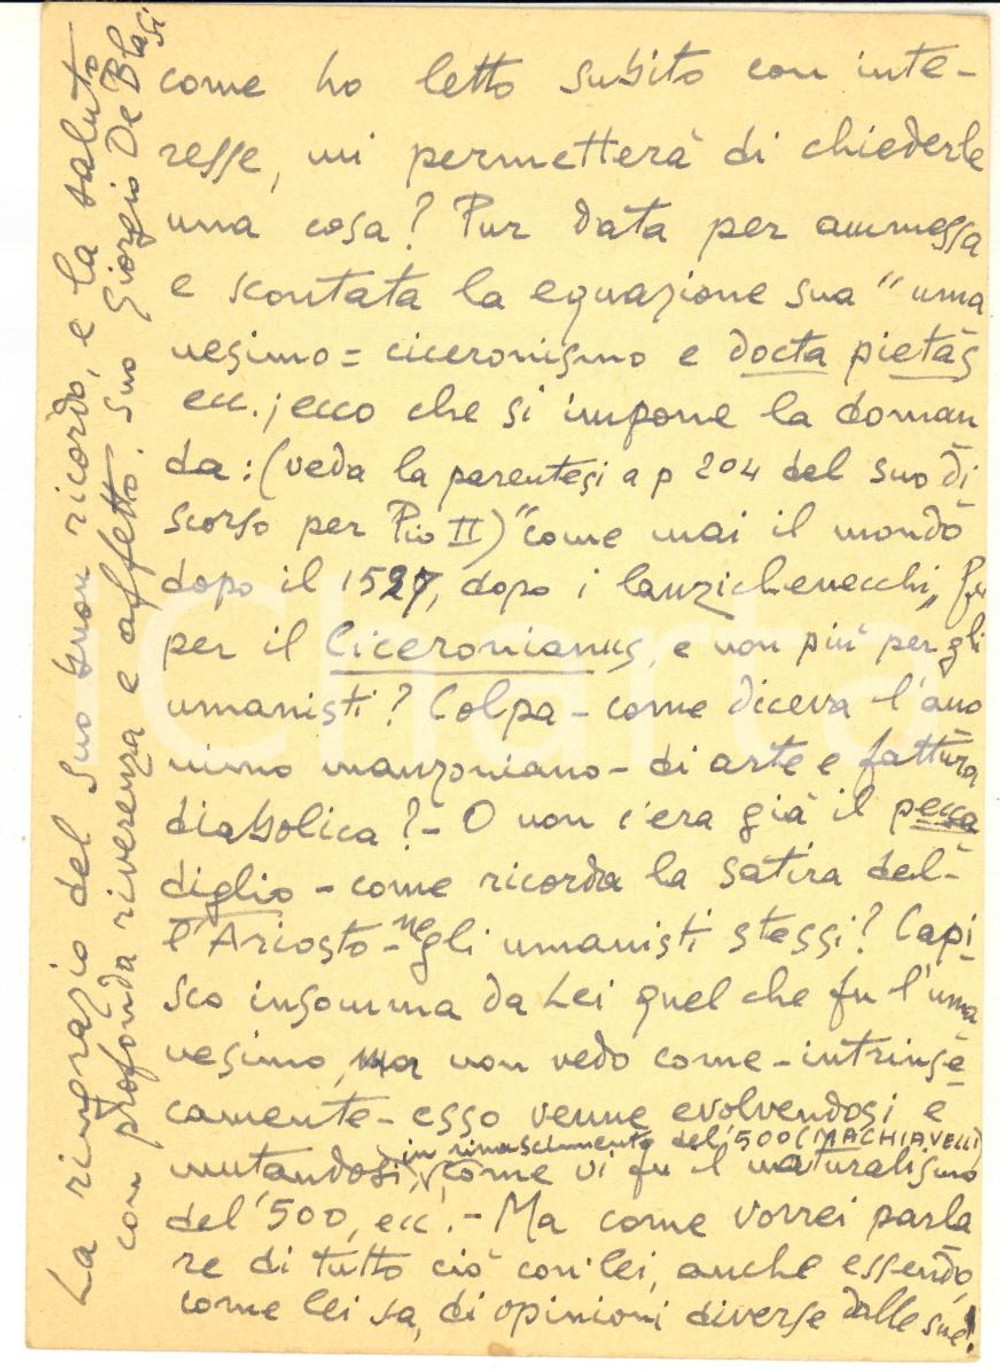 come ho letto subito con inte-
resse, mi permetterà di chiederle
una cosa? Pur data per ammessa
e scontata la equazione sua "uma
nesimo = ciceronismo e docta pietas
ecc.; ecco che si impone la doman
da: (veda la parentesi a p 204 del suo di
scorso per Pio II) "come mai il mondo
dopo il 1527, dopo i lanzichenecchi, fu
per il Ciceronianus, e non più per gli
umanisti? Colpa - come diceva l'ano
nimo manzoniano - di arte e fattura
diabolica? - O non c'era già il pecca
diglio - come ricorda la satira del-
l'Ariosto - negli umanisti stessi? Capi
sco insomma da Lei quel che fu l'uma
nesimo, ma non vedo come - intrinse
camente - esso venne evolvendosi e
in rinascimento del '500 (MACHIAVELLI)
mutandosi, come vi fu il naturalismo
del '500, ecc. - Ma come vorrei parla
re di tutto ciò con lei, anche essendo,
come lei sa, di opinioni diverse dalle sue!
La ringrazio del Suo buon ricordo, e la saluto
con profonda riverenza e affetto. Suo Giorgio De Blasi
Charta